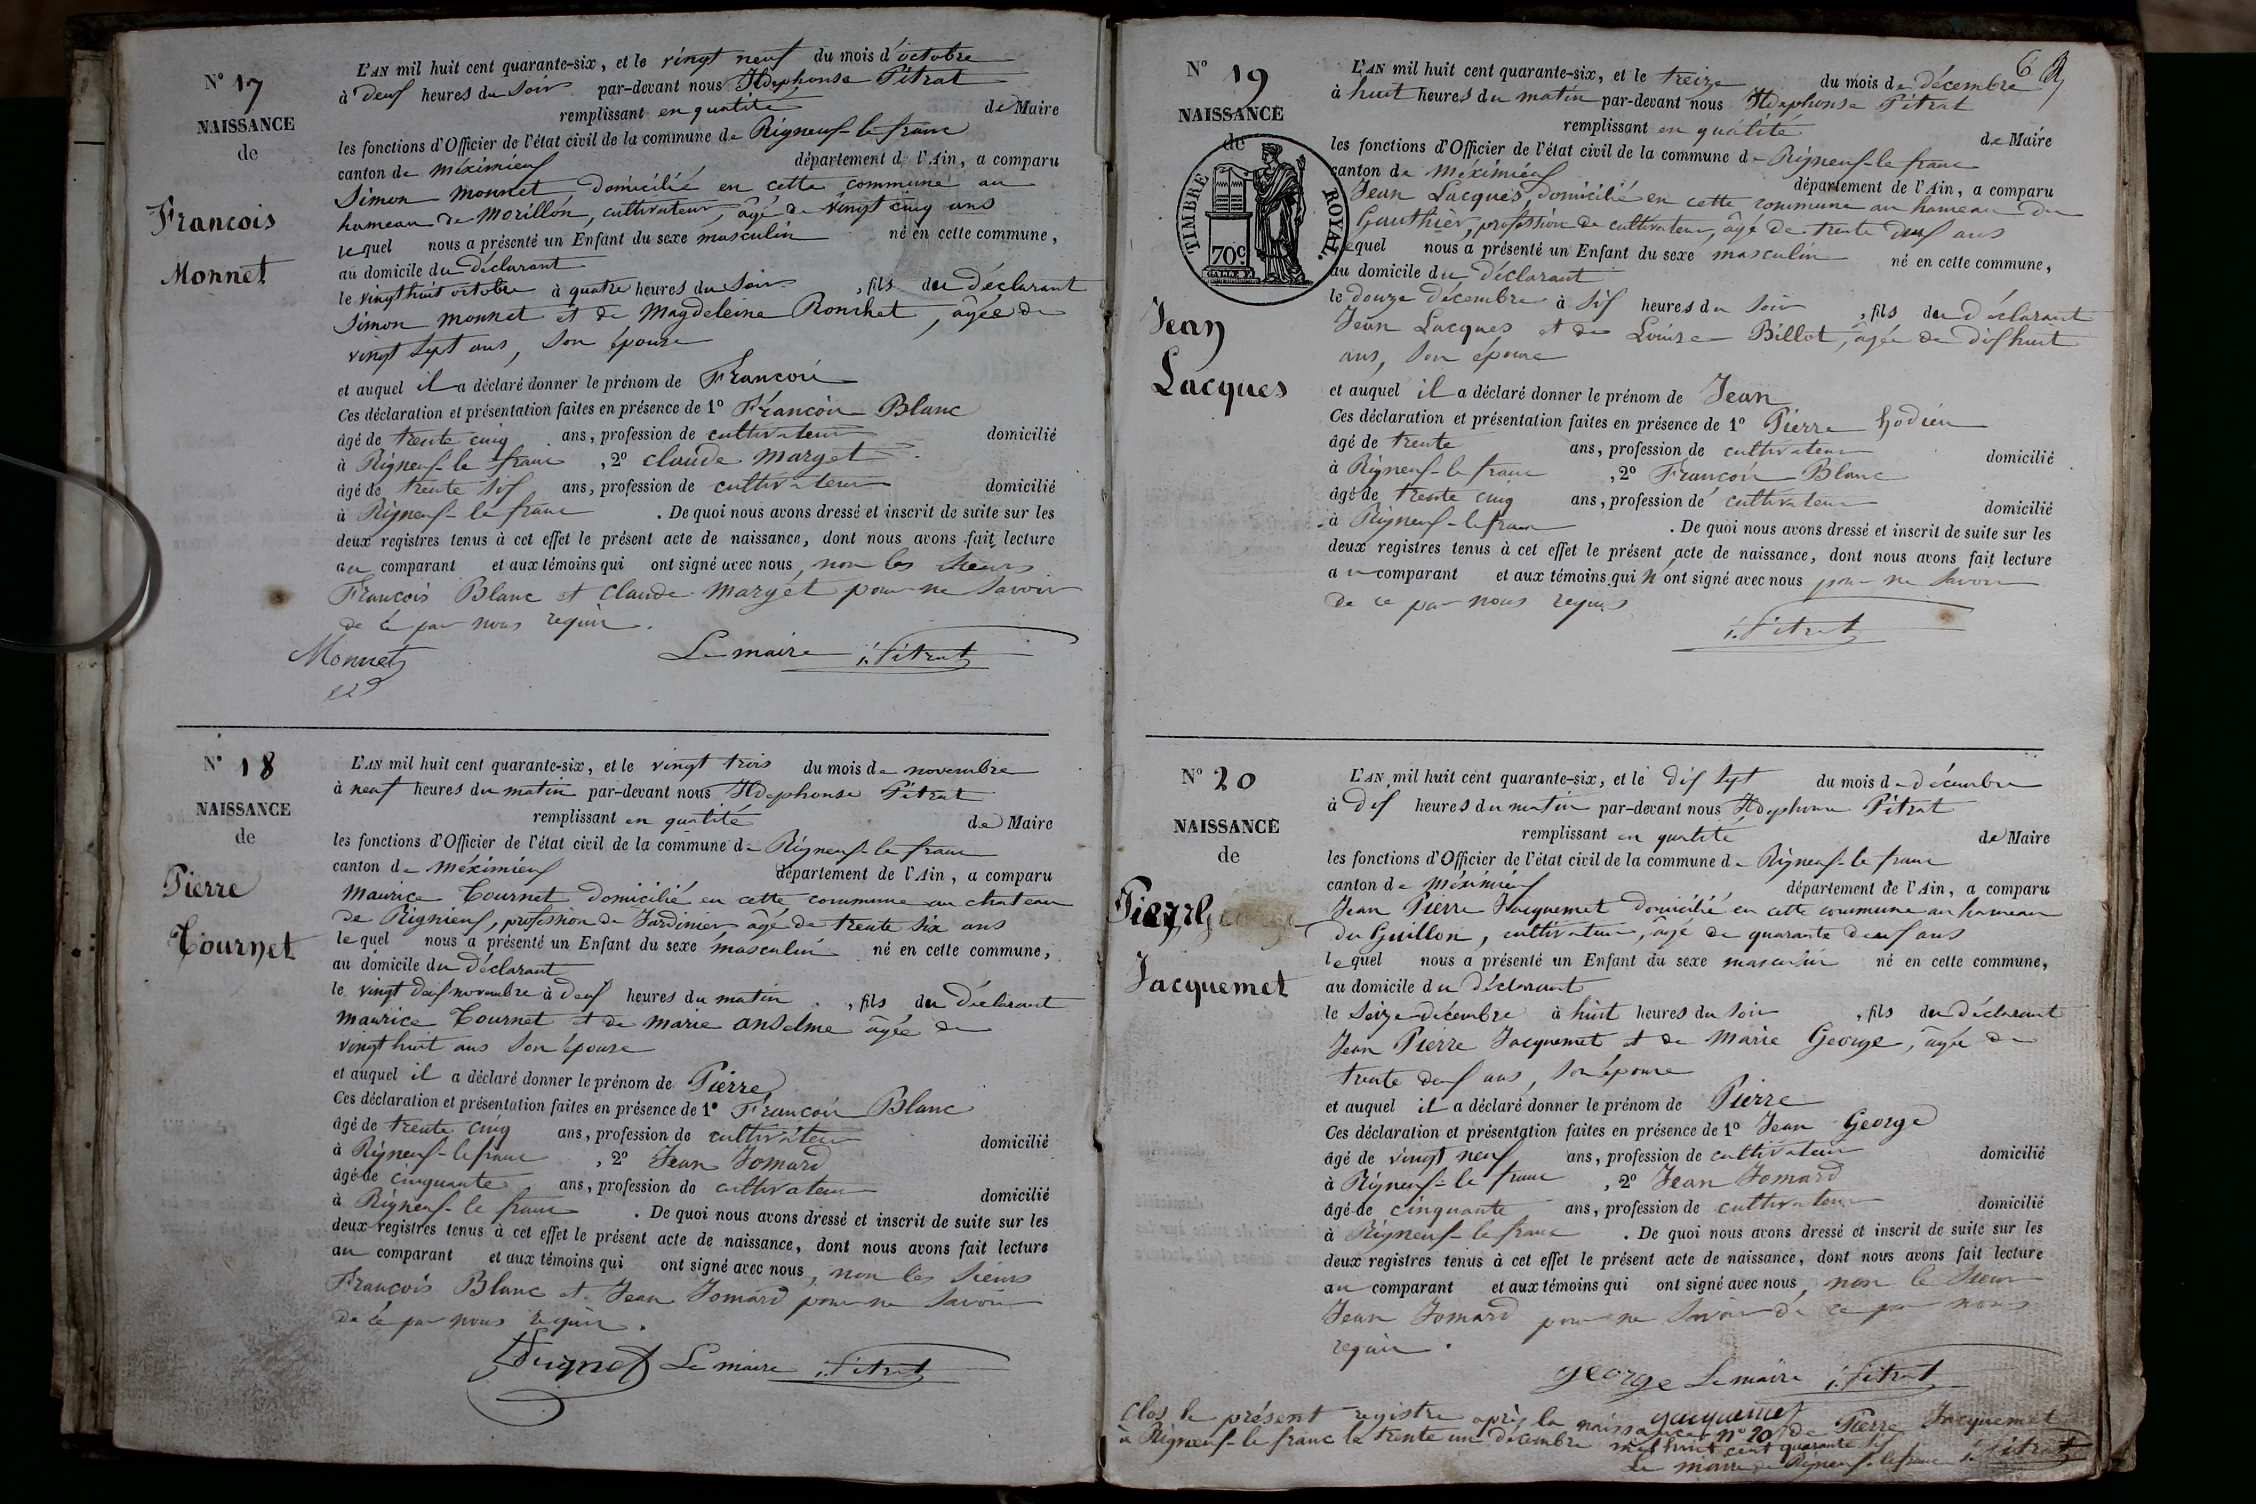 N° 17
NAISSANCE
de
François
Monnet
L'AN mil huit cent quarante-six, et le vingt neuf du mois d'octobre
à deux heures du soir par-devant nous Ildephonse Pitrat
remplissant en qualité de Maire
les fonctions d'Officier de l'état civil de la commune de Rigneux-le franc
canton de Méximieux département de l'Ain, a comparu
Simon Monnet domicilié en cette commune au
hameau de Morillon, cultivateur, âgé de vingt cinq ans
lequel nous a présenté un Enfant du sexe masculin né en cette commune,
au domicile du déclarant
le vingt huit octobre à quatre heures du soir, fils du déclarant
Simon Monnet et de Magdeleine Ronchet, âgée de
vingt sept ans, son épouse
et auquel il a déclaré donner le prénom de François
Ces déclaration et présentation faites en présence de 1° François Blanc
âgé de trente cinq ans, profession de cultivateur domicilié
à Rigneux-le franc, 2° Claude Marget
âgé de trente six ans, profession de cultivateur domicilié
à Rigneux-le franc. De quoi nous avons dressé et inscrit de suite sur les
deux registres tenus à cet effet le présent acte de naissance, dont nous avons fait lecture
au comparant et aux témoins qui ont signé avec nous, non les sieurs
François Blanc et Claude Marget pour ne savoir
de ce par nous requis.
Monnet Le maire i. Pitrat
N° 18
NAISSANCE
de
Pierre
Tournet
L'AN mil huit cent quarante-six, et le vingt trois du mois de novembre
à neuf heures du matin par-devant nous Ildephonse Pitrat
remplissant en qualité de Maire
les fonctions d'Officier de l'état civil de la commune de Rigneux-le franc
canton de Méximieux département de l'Ain, a comparu
Maurice Tournet domicilié en cette commune au chateau
de Rignieux, profession de Jardinier âgé de trente six ans
lequel nous a présenté un Enfant du sexe masculin né en cette commune,
au domicile du déclarant
le vingt deux novembre à deux heures du matin, fils du déclarant
Maurice Tournet et de Marie Anselme âgée de
vingt huit ans son épouse
et auquel il a déclaré donner le prénom de Pierre
Ces déclaration et présentation faites en présence de 1° François Blanc
âgé de trente cinq ans, profession de cultivateur domicilié
à Rigneux-le franc, 2° Jean Jomard
âgé de cinquante ans, profession de cultivateur domicilié
à Rigneux-le franc. De quoi nous avons dressé et inscrit de suite sur les
deux registres tenus à cet effet le présent acte de naissance, dont nous avons fait lecture
au comparant et aux témoins qui ont signé avec nous, non les sieurs
François Blanc et Jean Jomard pour ne savoir
de ce par nous requis.
Le maire i. Pitrat
6
N° 19
NAISSANCE
de
TIMBRE ROYAL
70c
Jean
Lacques
L'AN mil huit cent quarante-six, et le treize du mois de décembre
à huit heures du matin par-devant nous Ildephonse Pitrat
remplissant en qualité de Maire
les fonctions d'Officier de l'état civil de la commune de Rigneux-le franc
canton de Méximieux département de l'Ain, a comparu
Jean Lacques, domicilié en cette commune au hameau du
Gauthier, profession de cultivateur, âgé de trente deux ans
lequel nous a présenté un Enfant du sexe masculin né en cette commune,
au domicile du déclarant
le douze décembre à six heures du soir, fils du déclarant
Jean Lacques et de Louise Billot, âgée de dix huit
ans, son épouse
et auquel il a déclaré donner le prénom de Jean
Ces déclaration et présentation faites en présence de 1° Pierre Hodieu
âgé de trente ans, profession de cultivateur domicilié
à Rigneux-le franc, 2° François Blanc
âgé de trente cinq ans, profession de cultivateur domicilié
à Rigneux-le franc. De quoi nous avons dressé et inscrit de suite sur les
deux registres tenus à cet effet le présent acte de naissance, dont nous avons fait lecture
au comparant et aux témoins qui n'ont signé avec nous pour ne savoir
de ce par nous requis
i. Pitrat
N° 20
NAISSANCE
de
Pierre
Jacquemet
L'AN mil huit cent quarante-six, et le dix sept du mois de décembre
à dix heures du matin par-devant nous Ildephonse Pitrat
remplissant en qualité de Maire
les fonctions d'Officier de l'état civil de la commune de Rigneux-le franc
canton de Méximieux département de l'Ain, a comparu
Jean Pierre Jacquemet domicilié en cette commune au hameau
du Guillon, cultivateur, âgé de quarante deux ans
lequel nous a présenté un Enfant du sexe masculin né en cette commune,
au domicile du déclarant
le seize décembre à huit heures du soir, fils du déclarant
Jean Pierre Jacquemet et de Marie George, âgée de
trente deux ans, son épouse
et auquel il a déclaré donner le prénom de Pierre
Ces déclaration et présentation faites en présence de 1° Jean George
âgé de vingt neuf ans, profession de cultivateur domicilié
à Rigneux-le franc, 2° Jean Jomard
âgé de cinquante ans, profession de cultivateur domicilié
à Rigneux-le franc. De quoi nous avons dressé et inscrit de suite sur les
deux registres tenus à cet effet le présent acte de naissance, dont nous avons fait lecture
au comparant et aux témoins qui ont signé avec nous, non le sieur
Jean Jomard pour ne savoir de ce par nous
requis.
george Le maire i. Pitrat
jacquemet
Clos le présent registre après la naissance n° 20 de Pierre Jacquemet
à Rigneux-le franc le trente un décembre mil huit cent quarante six
Le maire de Rigneux-le franc i. Pitrat